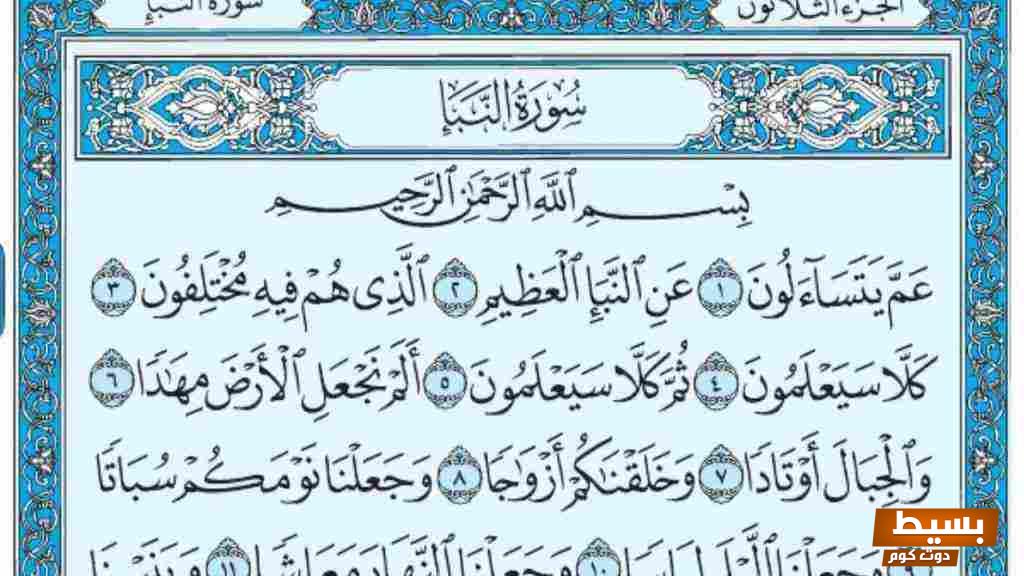 الجزء الثلاثون
سورة النبإ
سُورَةُ النَّبَإِ
بِسْمِ ٱللَّهِ ٱلرَّحْمَٰنِ ٱلرَّحِيمِ
عَمَّ يَتَسَآءَلُونَ ١ عَنِ ٱلنَّبَإِ ٱلْعَظِيمِ ٢ ٱلَّذِى هُمْ فِيهِ مُخْتَلِفُونَ ٣
كَلَّا سَيَعْلَمُونَ ٤ ثُمَّ كَلَّا سَيَعْلَمُونَ ٥ أَلَمْ نَجْعَلِ ٱلْأَرْضَ مِهَٰدًا ٦
وَٱلْجِبَالَ أَوْتَادًا ٧ وَخَلَقْنَٰكُمْ أَزْوَٰجًا ٨ وَجَعَلْنَا نَوْمَكُمْ سُبَاتًا
٩ وَجَعَلْنَا ٱلَّيْلَ لِبَاسًا ١٠ وَجَعَلْنَا ٱلنَّهَارَ مَعَاشًا ١١ وَبَنَيْنَا
بسيط
دوت كوم